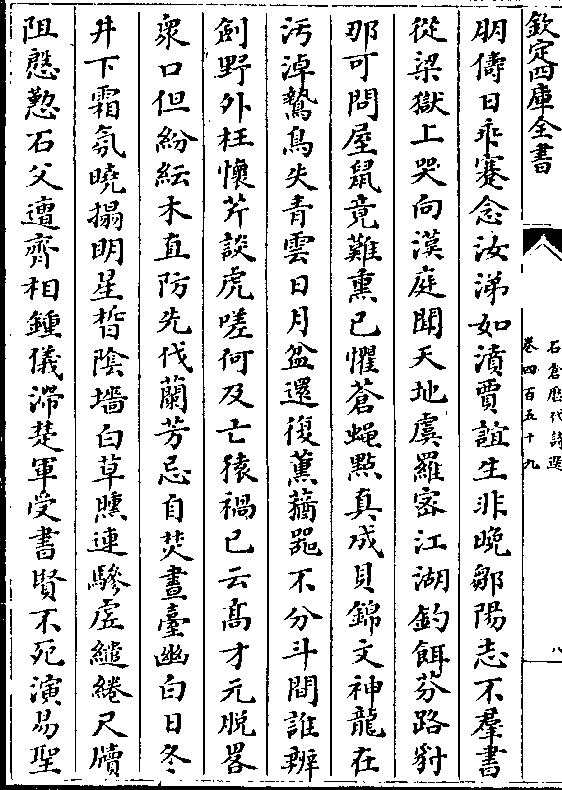 欽定四庫全書
石倉歷代詩選
卷四百五十九
八
朋儔日乖蹇念汝涕如濆賈誼生非晩鄒陽志不羣書
從梁獄上哭向漢庭聞天地虞羅宻江湖釣餌芬路豺
那可問屋鼠竟難熏已懼蒼蠅點真成貝錦文神龍在
汚淖鷙鳥失青雲日月盆還復薫蕕器不分斗間誰辨
劍野外枉懷芹談虎嗟何及亡猿禍已云髙才元脱畧
衆口但紛紜木直防先伐蘭芳忌自焚晝臺幽白日冬
井下霜氛曉搨明星晢陰墻白草曛連驂虚繾綣尺牘
阻慇懃石父遭齊相鍾儀滯楚軍受書賢不死演易聖